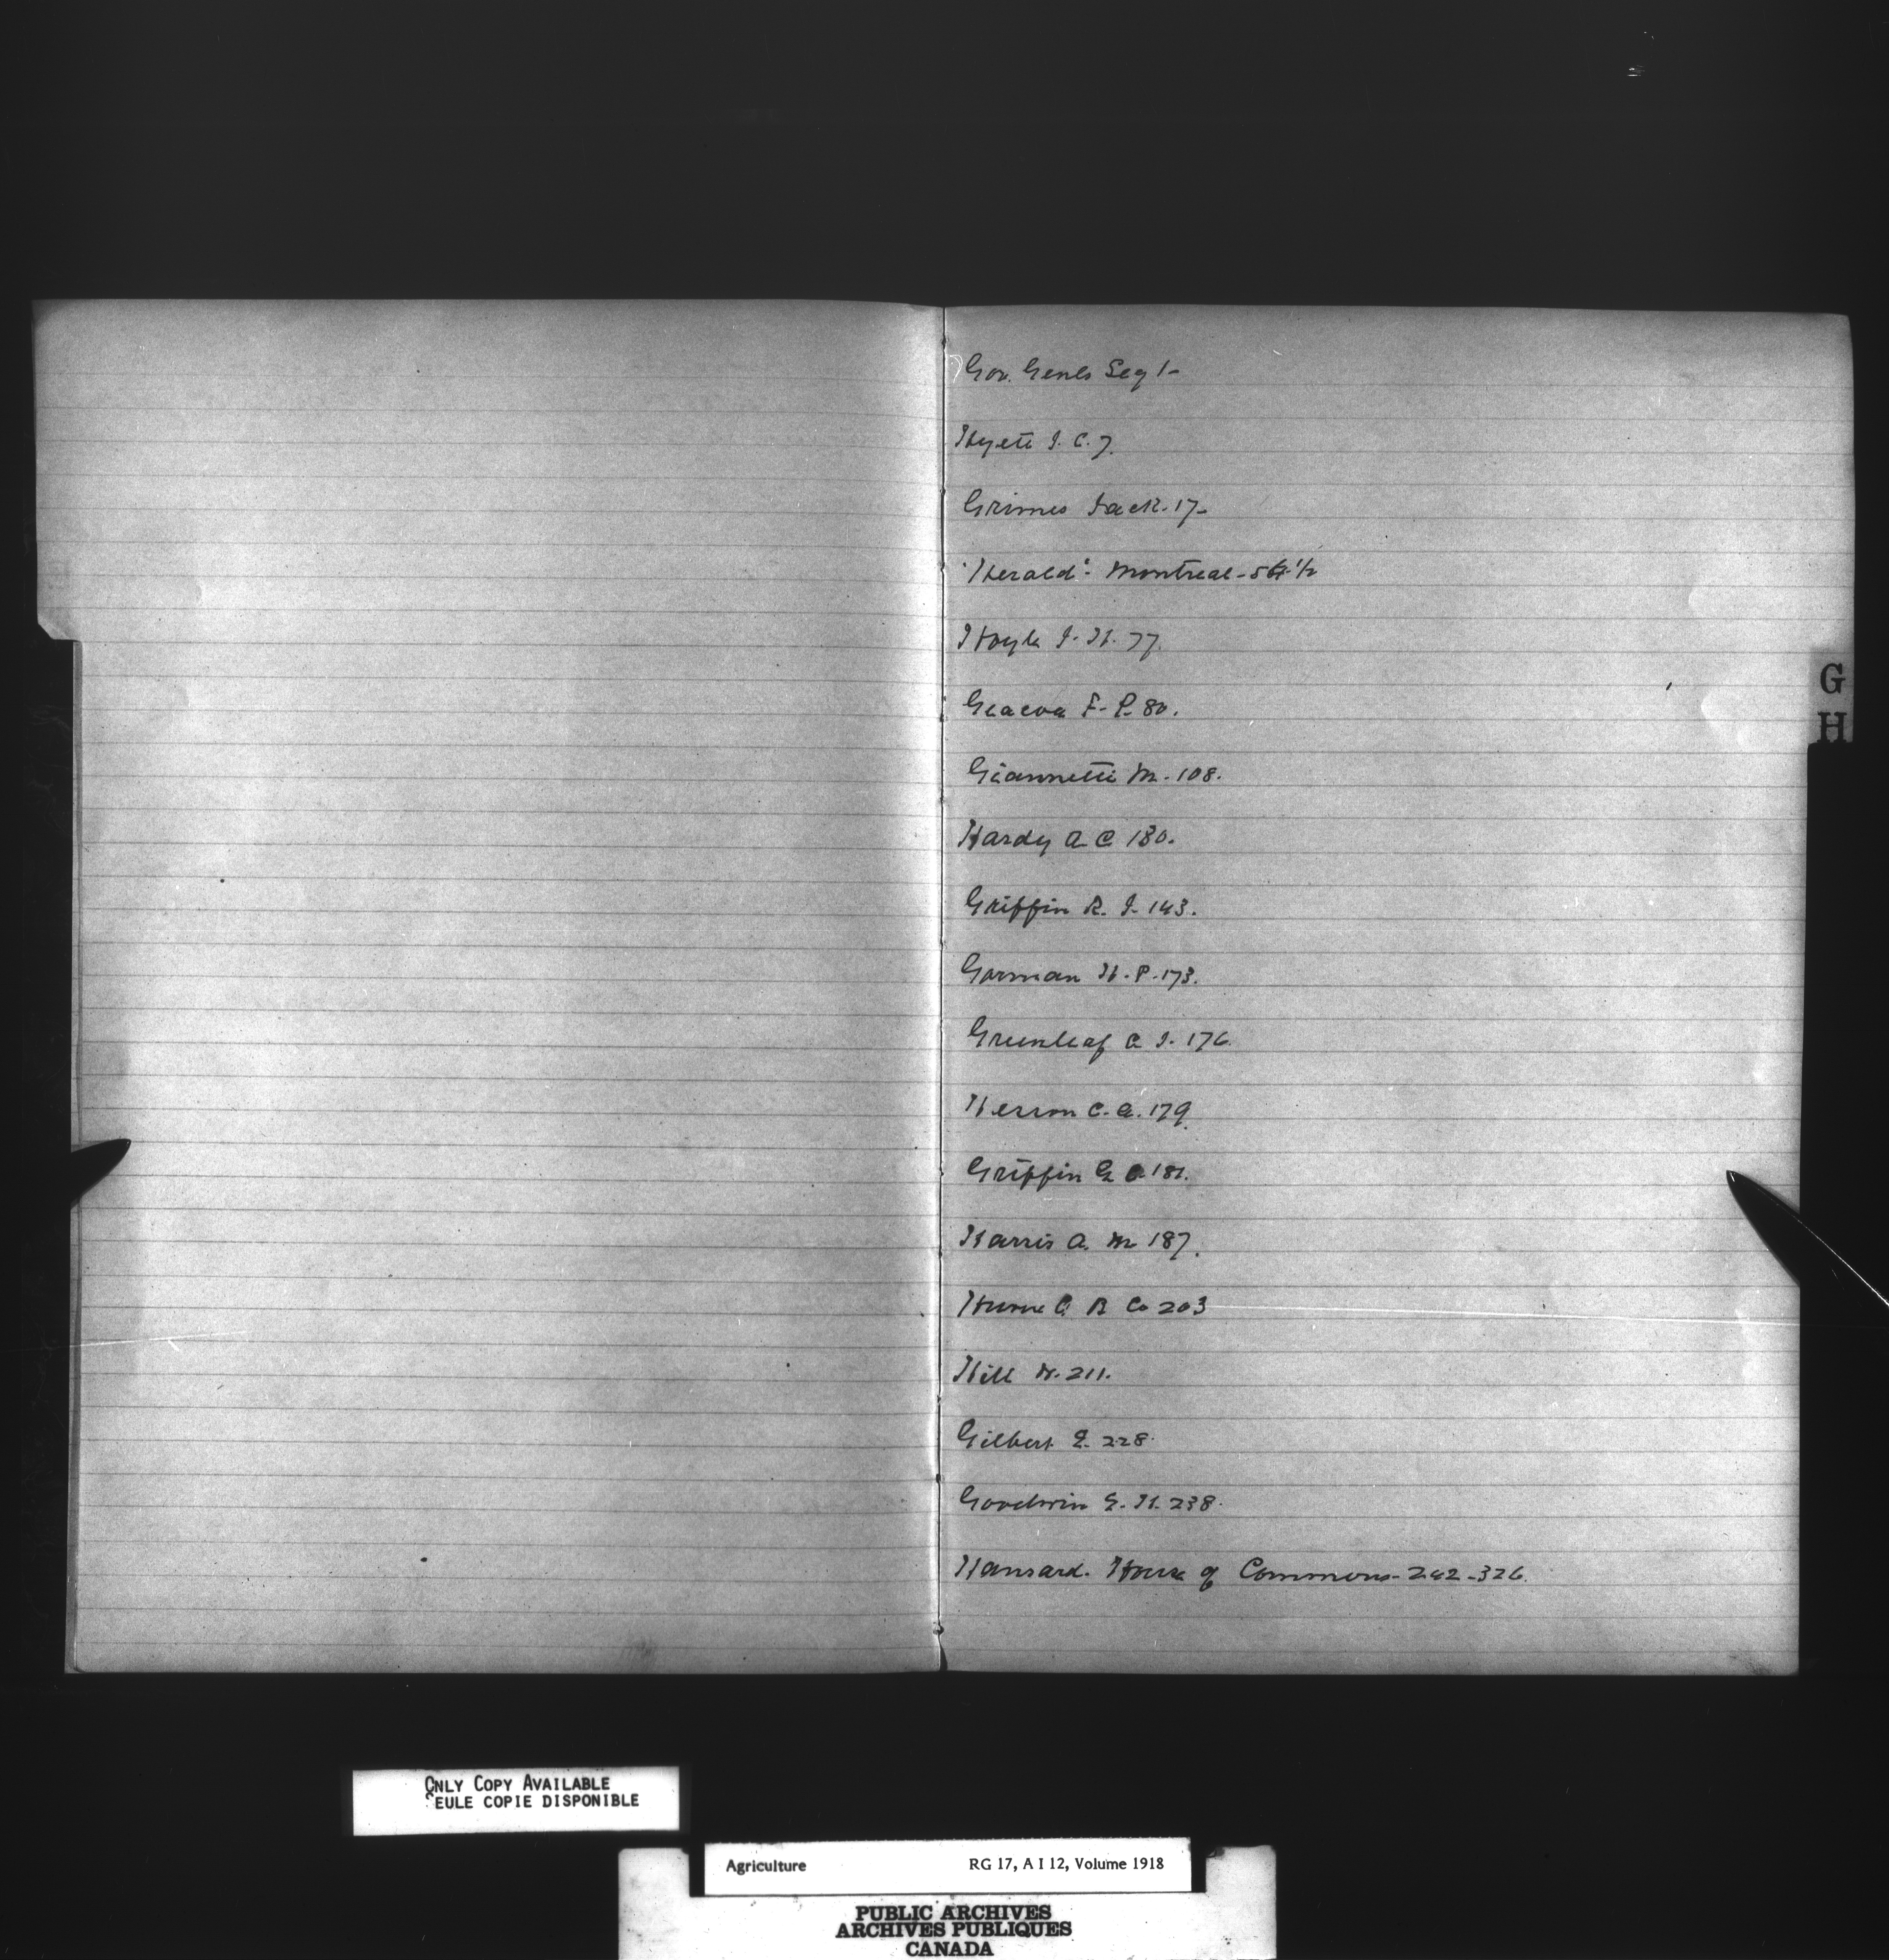 Gov. Genls Secy 1-
Hyett J. C. 7.
Grimes Jack. 17-
"Herald". Montreal - 1/2
Hoyle J. H. 77.
F. P. 80.
Giannetti M. 108.
Hardy A C 130.
Griffin R. J. 143.
Gorman H. P. 173.
Greenleaf C J. 176.
Herron C. A. 179.
Griffin G C 181.
Harris A. M 187.
Hume C. R Co 203
Hill N. 211.
Gilbert E. 228.
Goodwin G. H. 238.
Hansard. House of Commons - 242 - 326.
G
H
ONLY COPY AVAILABLE
SEULE COPIE DISPONIBLE
Agriculture RG 17, A I 12, Volume 1918
PUBLIC ARCHIVES
ARCHIVES PUBLIQUES
CANADA